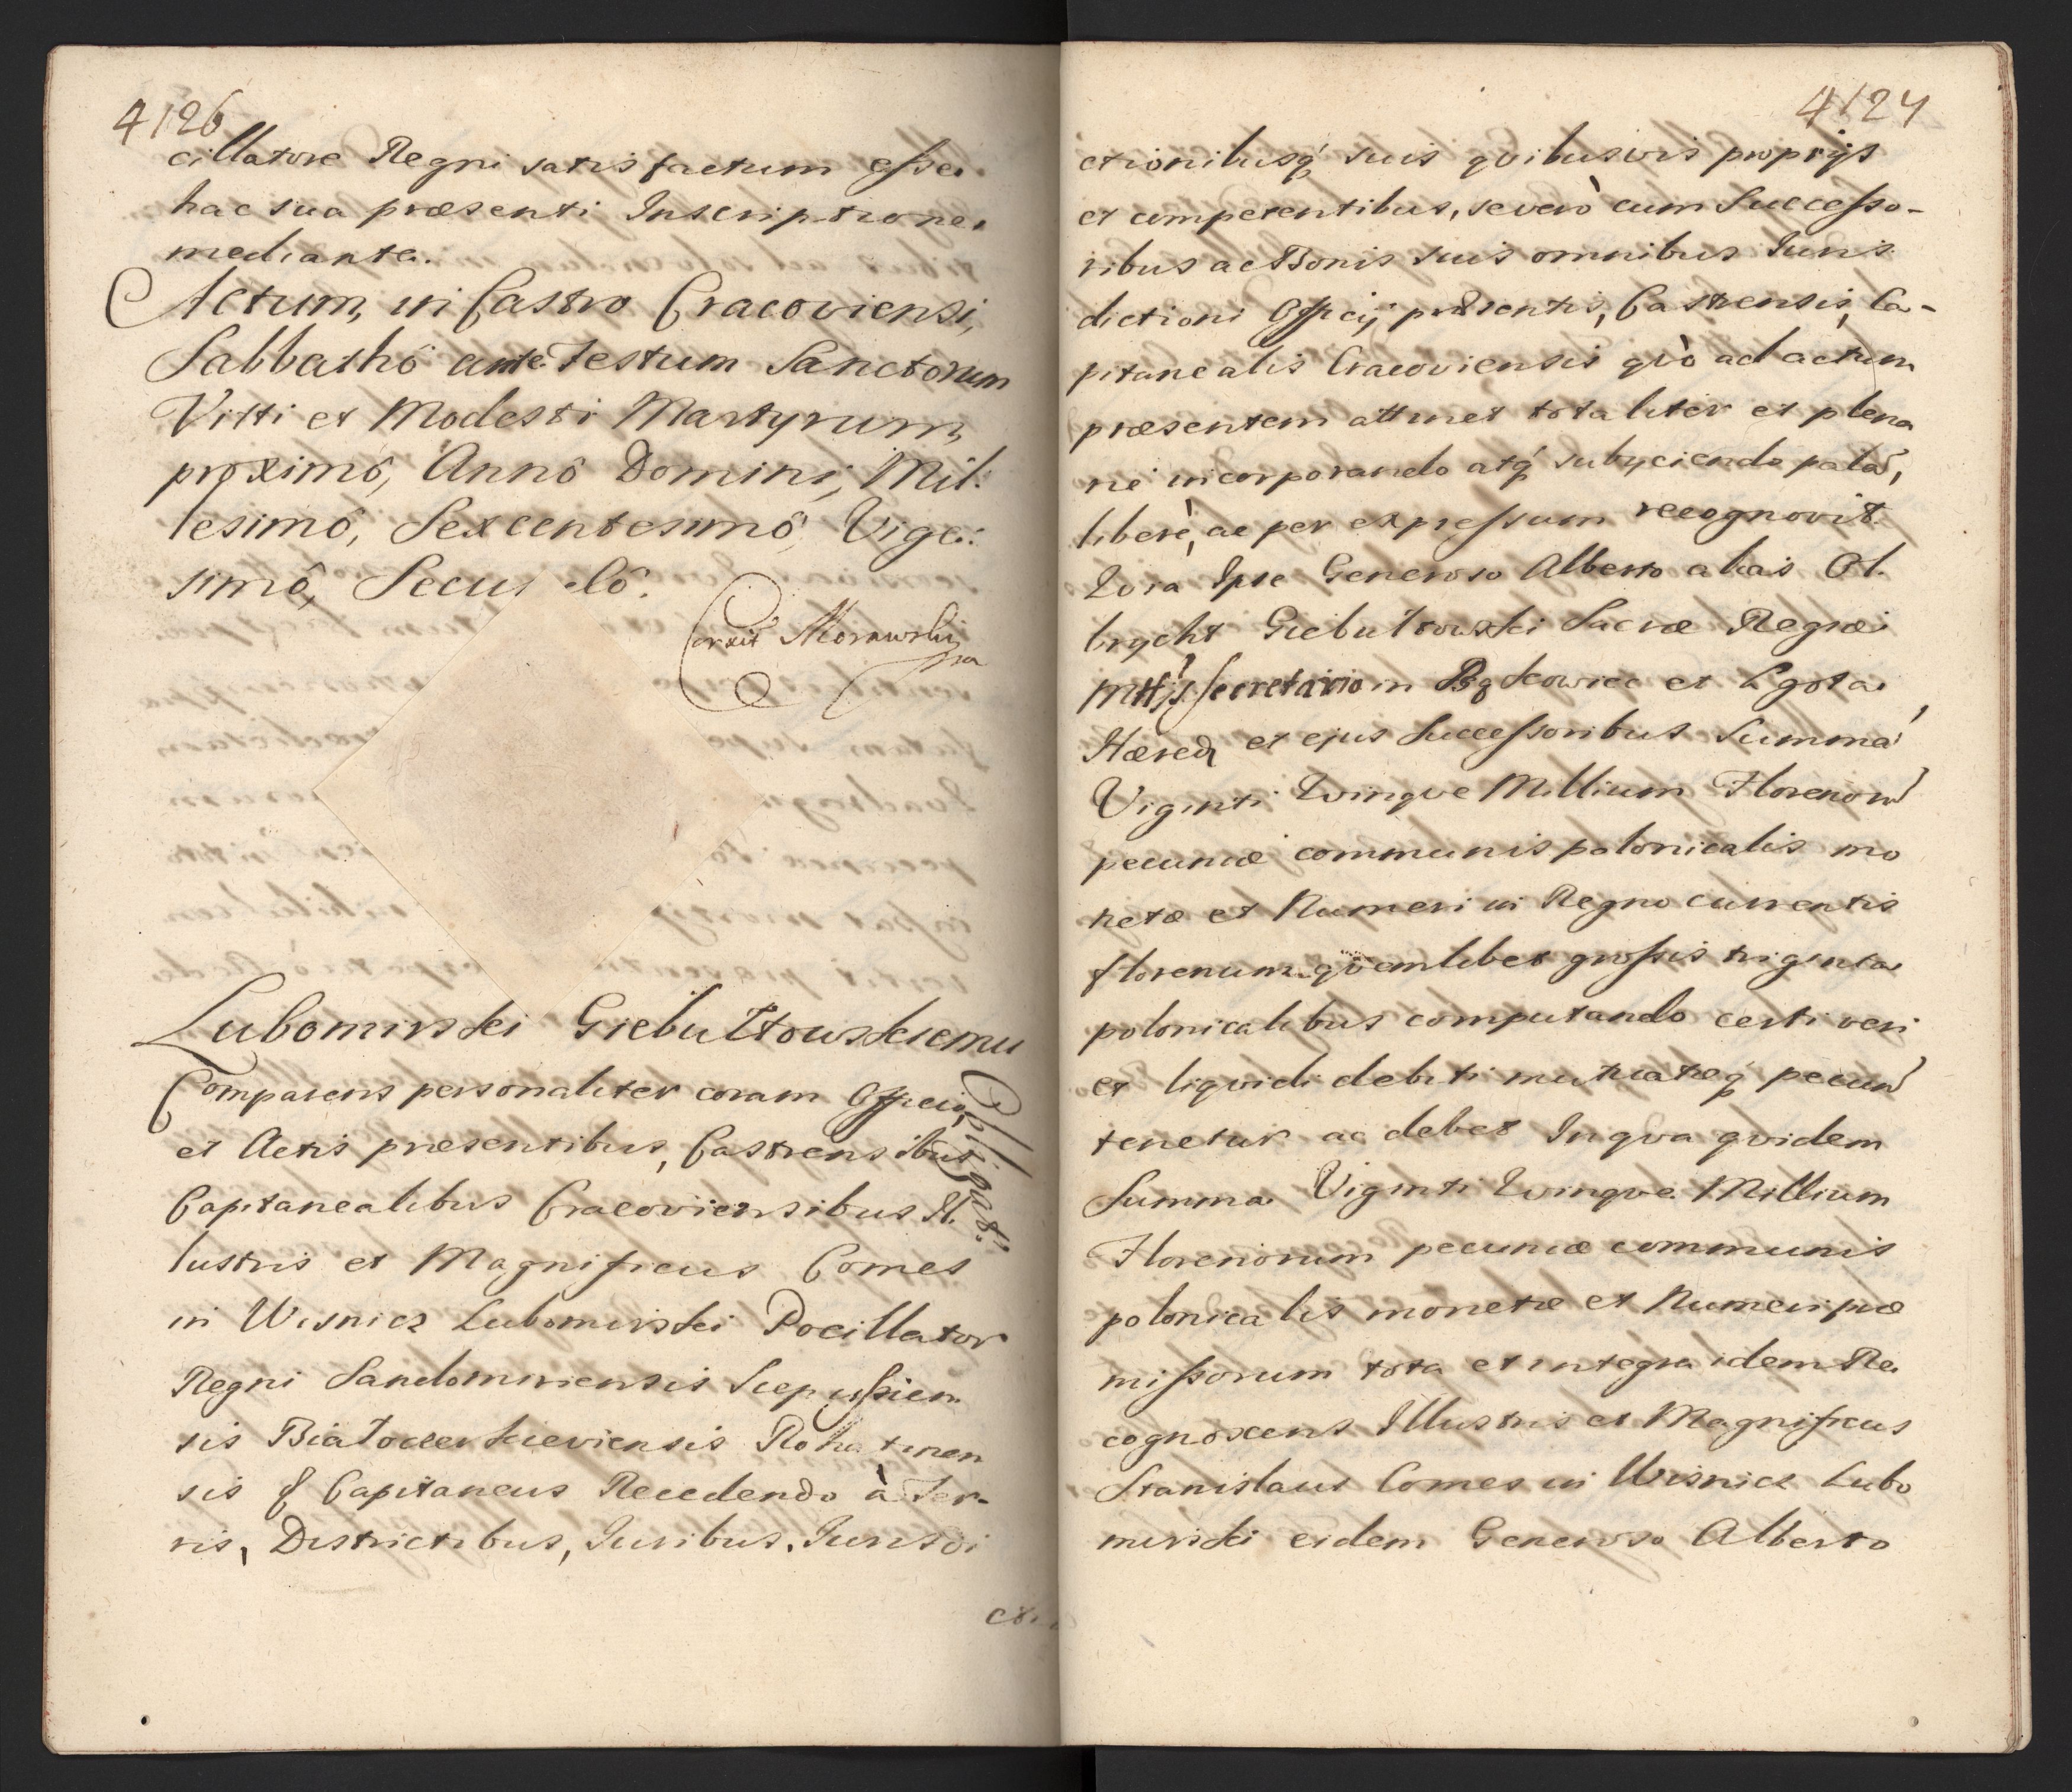 4126
cillatore Regni satisfactum esse
hac sua præsenti Inscriptione
mediante.
Actum, in Castro Cracoviensi,
Sabbathô ante Festum Sanctorum
Vitti et Modesti Martyrum,
proximô, Annô Domini, Mil:
lesimô, Sexcentesimô, Vige:
simô, Secundô.
Morawski
Lubomirski Giebułtowskiemu
Obligat:
Comparens personaliter coram Officio,
et Actis præsentibus, Castrensibus
Capitanealibus Cracoviensibus Il.
lustris et Magnificus Comes
in Wisnicz Lubomirski Pocillator
Regni Sandomiriensis Scepussien
sis Białocerkieviensis Rohatinen
sis & Capitaneus Recedendo à Ter-
ris, Districtibus, Iuribus, Iurisdi
ct.
4127
ctionibusq́ suis qvibusvis proprijs
et competentibus, se verò cum Successo-
ribus ac Bonis suis omnibus Iuris
dictioni Officij præsentis, Castrensis, Ca-
pitanealis Cracoviensis qvò ad actum
præsentem attinet totaliter et plena
rie incorporando atq́ subyciendo palã,
liberè, ac per expressum recognovit.
Qvia Ipse Generoso Alberto alias Ol.
brycht Giebułtowski Sacræ Regiæ
Mttis Secretario in Bąkowiec et Lgota
Hæred et ejus Successoribus Summã
Viginti Qvinqve Millium Florenorũ
pecuniæ communis polonicalis mo
netæ et Numeri in Regno currentis
florenum qvemlibet grossis triginta
polonicalibus computando certi veri
et liqvidi debiti mutuatæq́ pecuñ
tenetur ac debet In qva qvidem
Summa Viginti Qvinqve Millium
Florenorum pecuniæ communis
polonicalis monetæ et Numeri præ
missorum tota et integra idem Re
cognoscens Illustris et Magnificus
Stanislaus Comes in Wisnicz Lubo
mirski eidem Generoso Alberto